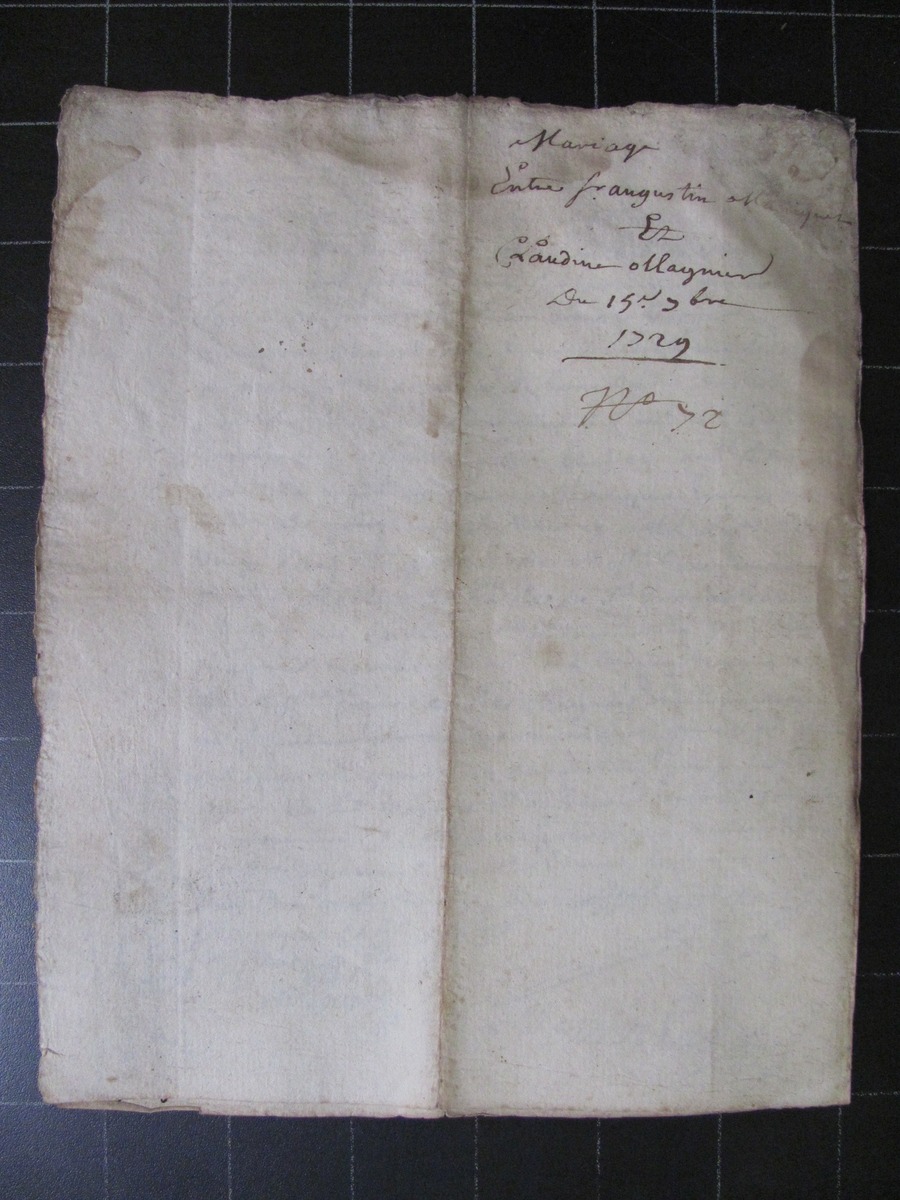 Mariage
Entre fr. augustin
Et
Claudine Magnier
Du 15.e 7bre
1729
No 72